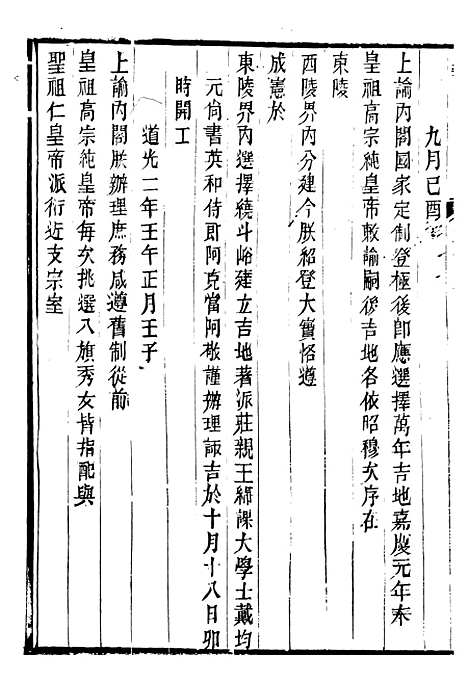 九月己酉
上諭內閣國家定制登極後卽應選擇萬年吉地嘉慶元年奉
皇祖高宗純皇帝敕諭嗣後吉地各依昭穆次序在
東陵
西陵界內分建今朕紹登大寶恪遵
成憲於
東陵界內選擇繞斗峪建立吉地著派莊親王綿課大學士戴均
元尙書英和侍郎阿克當阿敬謹辦理諏吉於十月十八日卯
時開工
道光二年壬午正月壬子
上諭內閣朕辦理庶務咸遵舊制從前
皇祖高宗純皇帝每次挑選八旗秀女皆指配與
聖祖仁皇帝派衍近支宗室